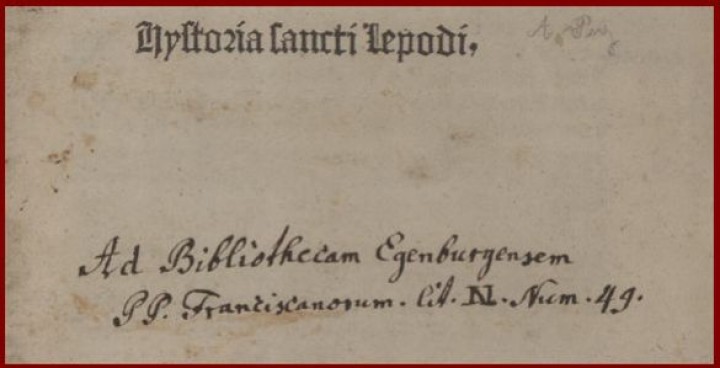 Hystoria sancti Lepodi,
Ad Bibliothecam Egenburgensem
PP. Franciscanorum. lit. N. Num. 49.